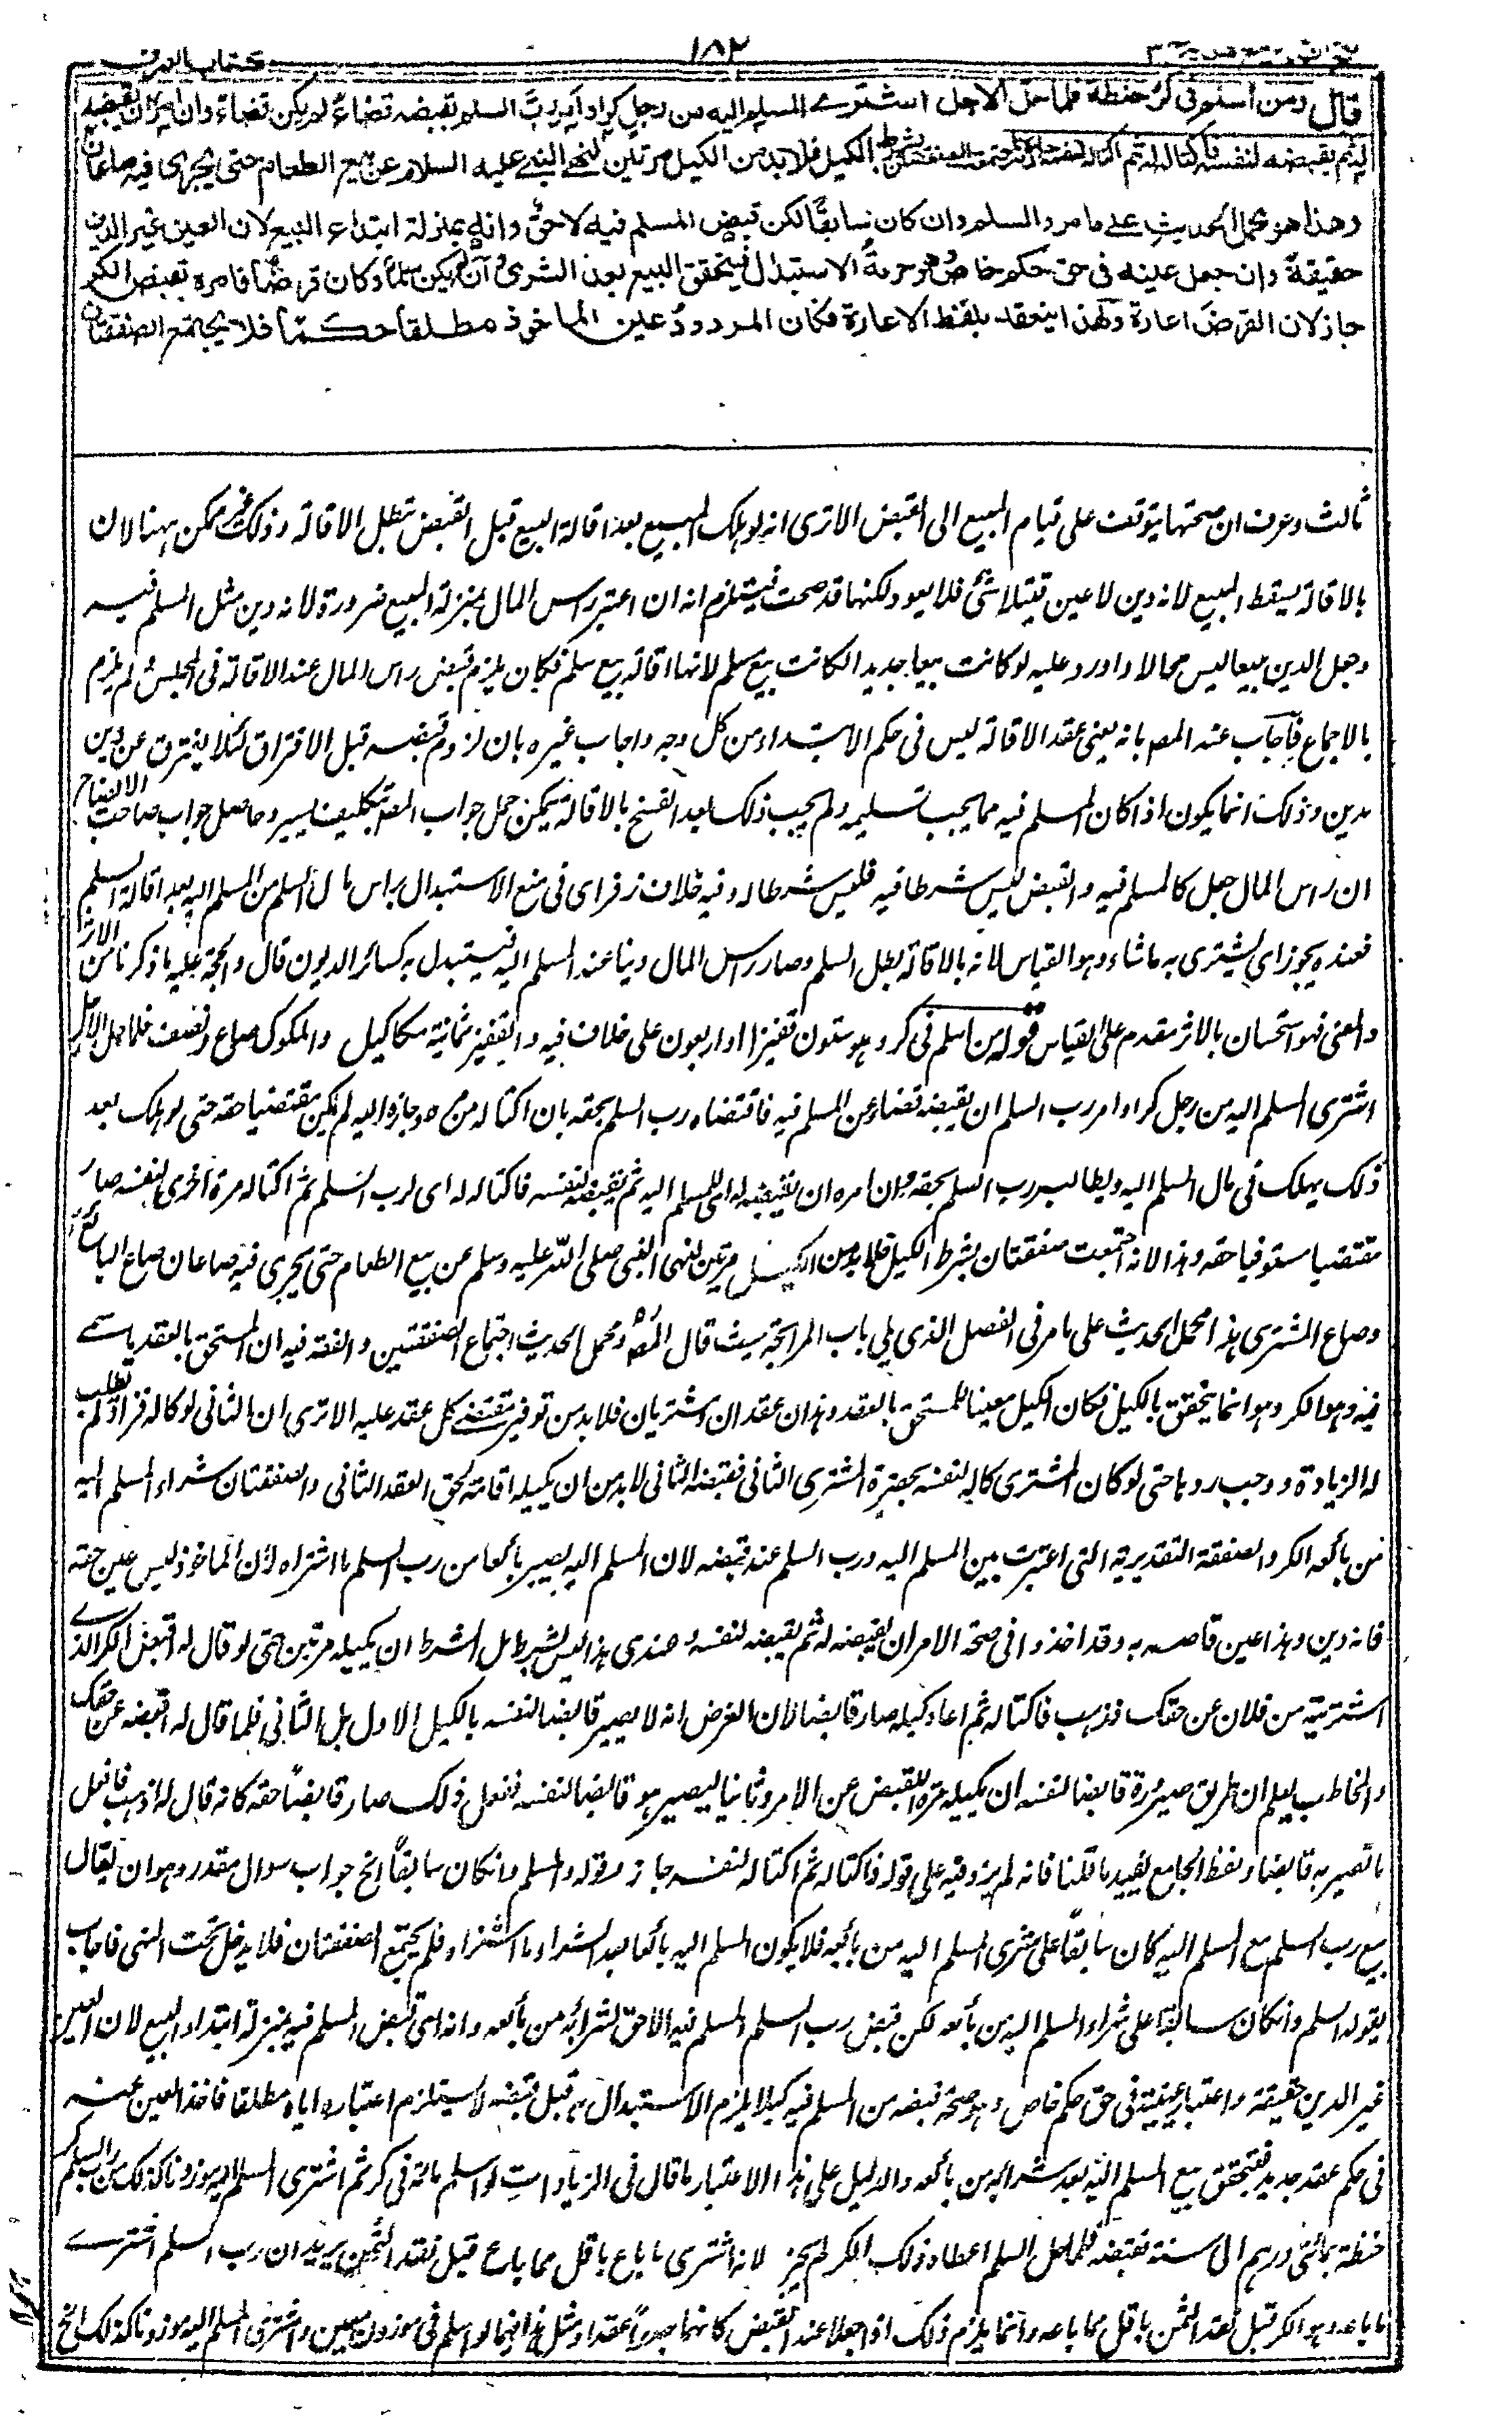 ١٨٢
كتاب البيوع
قال ومن اسلم في كر حنطة فلما حل الاجل اشترى المسلم اليه من رجل كرا وامر رب السلم بقبضه قضاء لم يكن قضاء وان امره ان يقبضه
له ثم يقبضه لنفسه فاكتاله له ثم اكتاله لنفسه جاز لانه اجتمعت الصفقتان بشرط الكيل فلا بد من الكيل مرتين لنهي النبي عليه السلام عن بيع الطعام حتى يجري فيه صاعان
وهذا هو محمل الحديث على ما مر والسلم وان كان سابقا لكن قبض المسلم فيه لاحق وانه بمنزلة ابتداء البيع لان العين غير الدين
حقيقة وان جعل عينه في حق حكم خاص هو حرمة الاستبدال فيتحقق البيع بعد الشرى وان لم يكن سلما وكان قرضا فامره بقبض الكر
جاز لان القرض اعارة ولهذا ينعقد بلفظ الاعارة فكان المردود عين الماخوذ مطلقا حكما فلا يجتمع الصفقتان
ثالث وعرف ان صحتها يتوقف على قيام المبيع الى القبض الا ترى انه لو هلك المبيع بعد اقالة البيع قبل القبض تبطل الاقالة وذلك غير ممكن ههنا لان
بالاقالة يسقط المبيع لانه دين لا عين فيتلاشى فلا يعود ولكنها قد صحت فيستلزم انه ان اعتبر راس المال بمنزلة المبيع ضرورة لانه دين مثل المسلم فيه
وجعل الدين مبيعا ليس محالا واورد عليه لو كانت بيعا جديدا لكانت بيع سلم لانها اقالة بيع سلم فكان يلزم قبض راس المال عند الاقالة في المجلس ولم يلزم
بالاجماع فاجاب عنه المصـ بانه يعني عقد الاقالة ليس في حكم الابتداء من كل وجه واجاب غيره بان لزوم قبضه قبل الافتراق لئلا يفترق عن دين
بدين وذلك انما يكون اذا كان المسلم فيه مما يجب تسليمه ولم يجب ذلك بعد الفسخ بالاقالة يمكن حمل جواب المصـ بتكليف يسير وحاصل جواب صاحب الايضاح
ان راس المال جعل كالمسلم فيه والقبض ليس شرطا فيه فليس شرطا له وفيه خلاف زفر اي في منع الاستبدال براس مال السلم من المسلم اليه بعد اقالة السلم
فعنده يجوز اي يشتري به ما شاء وهو القياس لانه بالاقالة بطل السلم وصار راس المال دينا عند المسلم اليه فيستبدل به كسائر الديون قال والحجة عليه ما ذكرنا من الاثر
والمعنى فهو استحسان بالاثر مقدم على القياس قوله ومن اسلم في كر وهو ستون قفيزا او اربعون على خلاف فيه والقفيز ثمانية مكاكيل والمكوك صاع ونصف فلما حل الاجل
اشترى المسلم اليه من رجل كرا وامر رب السلم ان يقبضه قضاء عن المسلم فيه فاقتضاه رب السلم بحقه بان اكتاله مرة وجازه اليه لم يكن مقتضيا حقه حتى لو هلك بعد
ذلك يهلك في مال المسلم اليه ويطالبه رب السلم بحقه وان امره ان يقبضه له اي للمسلم اليه ثم يقبضه لنفسه فاكتاله له اي لرب السلم ثم اكتاله مرة اخرى لنفسه صار
مقتضيا مستوفيا حقه وهذا لانه اجتمعت صفقتان بشرط الكيل فلا بد من الكيل مرتين لنهي النبي صلى الله عليه وسلم عن بيع الطعام حتى يجري فيه صاعان صاع البائع
وصاع المشتري هذا محمل الحديث على ما مر في الفصل الذي يلي باب المرابحة حيث قال المصـ ومحمل الحديث اجتماع الصفقتين والفقه فيه ان المستحق بالعقد ما سمي
فيه وهو الكر وهو انما يتحقق بالكيل فكان الكيل معينا للمستحق بالعقد وهذان عقدان ومشتريان فلا بد من توفير مقتضى كل عقد عليه الا ترى ان الثاني لو كاله فزاد لم تطب
له الزيادة ووجب ردها حتى لو كان المشتري كاله لنفسه بحضرة المشتري الثاني فقبضه الثاني لا بد من ان يكيله اقامة لحق العقد الثاني والصفقتان شراء المسلم اليه
من بائعه الكر والصفقة التقديرية التي اعتبرت بين المسلم اليه ورب السلم عند قبضه لان المسلم اليه يصير بائعا من رب السلم ما اشتراه لان الماخوذ ليس عين حقه
فانه دين وهذا عين قاصه به وقد اخذوا في صحة الامر ان يقبضه له ثم يقبضه لنفسه وعندي هذا ليس بشرط بل الشرط ان يكيله مرتين حتى لو قال له اقبض الكر الذي
اشتريته من فلان عن حقك فذهب فاكتاله ثم اعاد كيله صار قابضا لان الغرض انه لا يصير قابضا لنفسه بالكيل الاول بل الثاني فلما قال له اقبضه عن حقك
والمخاطب يعلم ان طريق صيرورته قابضا لنفسه ان يكيله مرة للقبض عن الامر وثانيا ليصير هو قابضا لنفسه ففعل ذلك صار قابضا حقه كانه قال له اذهب فافعل
ما تصير به قابضا ولفظ الجامع يفيد ما قلنا فانه لم يزد فيه على قوله فاكتاله ثم اكتاله لنفسه جاز وقوله والسلم وان كان سابقا الخ جواب سوال مقدر وهو ان يقال
بيع رب السلم مع المسلم اليه كان سابقا على شرى المسلم اليه من بائعه فلا يكون المسلم اليه بائعا بعد الشراء ما اشتراه فلم يجتمع الصفقتان فلا يدخل تحت النهي فاجاب
بقوله السلم وان كان سابقا على شراء المسلم اليه من بائعه لكن قبض رب السلم المسلم فيه لاحق لشرائه من بائعه وانه اي قبض المسلم فيه بمنزلة ابتداء البيع لان العين
غير الدين حقيقة واعتبار عينية في حق حكم خاص وهو صحة قبضه من المسلم فيه كيلا يلزم الاستبدال به قبل قبضه لا يستلزم اعتباره اياه مطلقا فاخذ العين عنه
في حكم عقد جديد فيتحقق بيع المسلم اليه بعد شرائه من بائعه والدليل على هذا الاعتبار ما قال في الزيادات لو اسلم مائة في كر ثم اشترى المسلم اليه من رب السلم كر
حنطة بمائتي درهم الى سنة فقبضه فلما حل السلم اعطاه ذلك الكر لم يجز لانه اشترى ما باع باقل مما باع قبل نقد الثمن يريد ان رب السلم اشترى
ما باعه وهو الكر قبل نقد الثمن باقل مما باعه وانما يلزم ذلك اذا جعلا عند القبض كانهما جددا عقدا ومثل هذا فيما لو اسلم في موزون معين واشترى المسلم اليه موزونا كذلك الخ